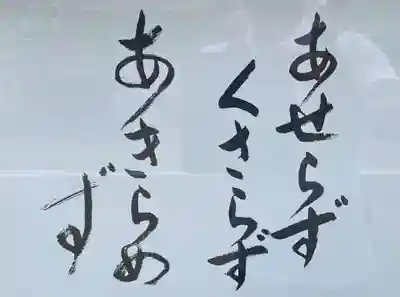 あせらず
くさらず
あきらめ
ず